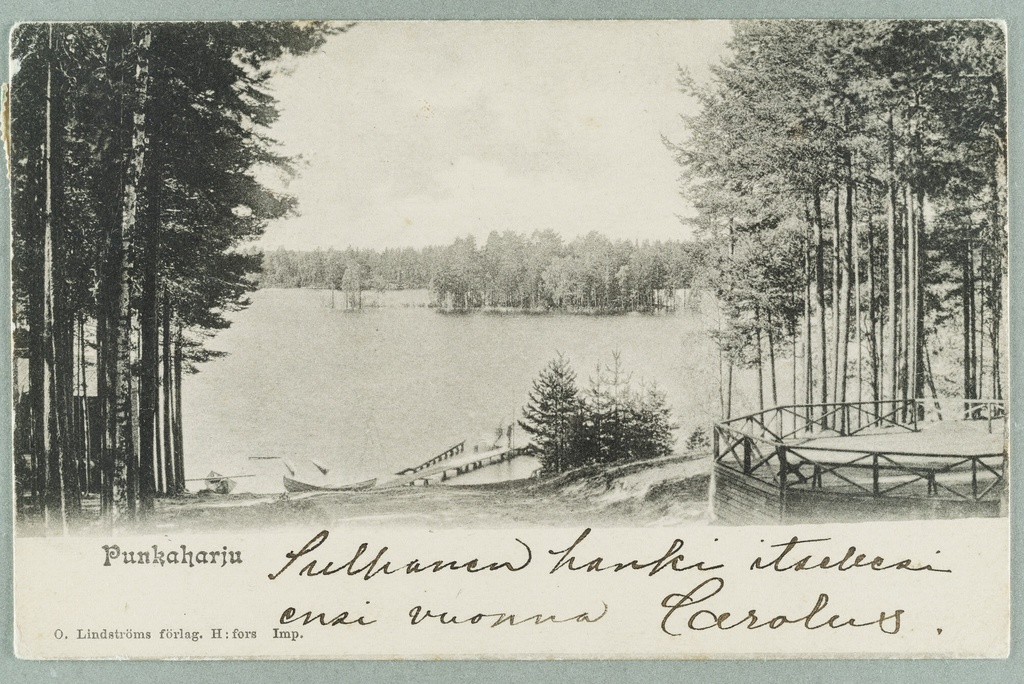 Punkaharju
Sulhanen hanki itsellesi
ensi vuonna Carolus.
O. Lindströms förlag. H:fors Imp.